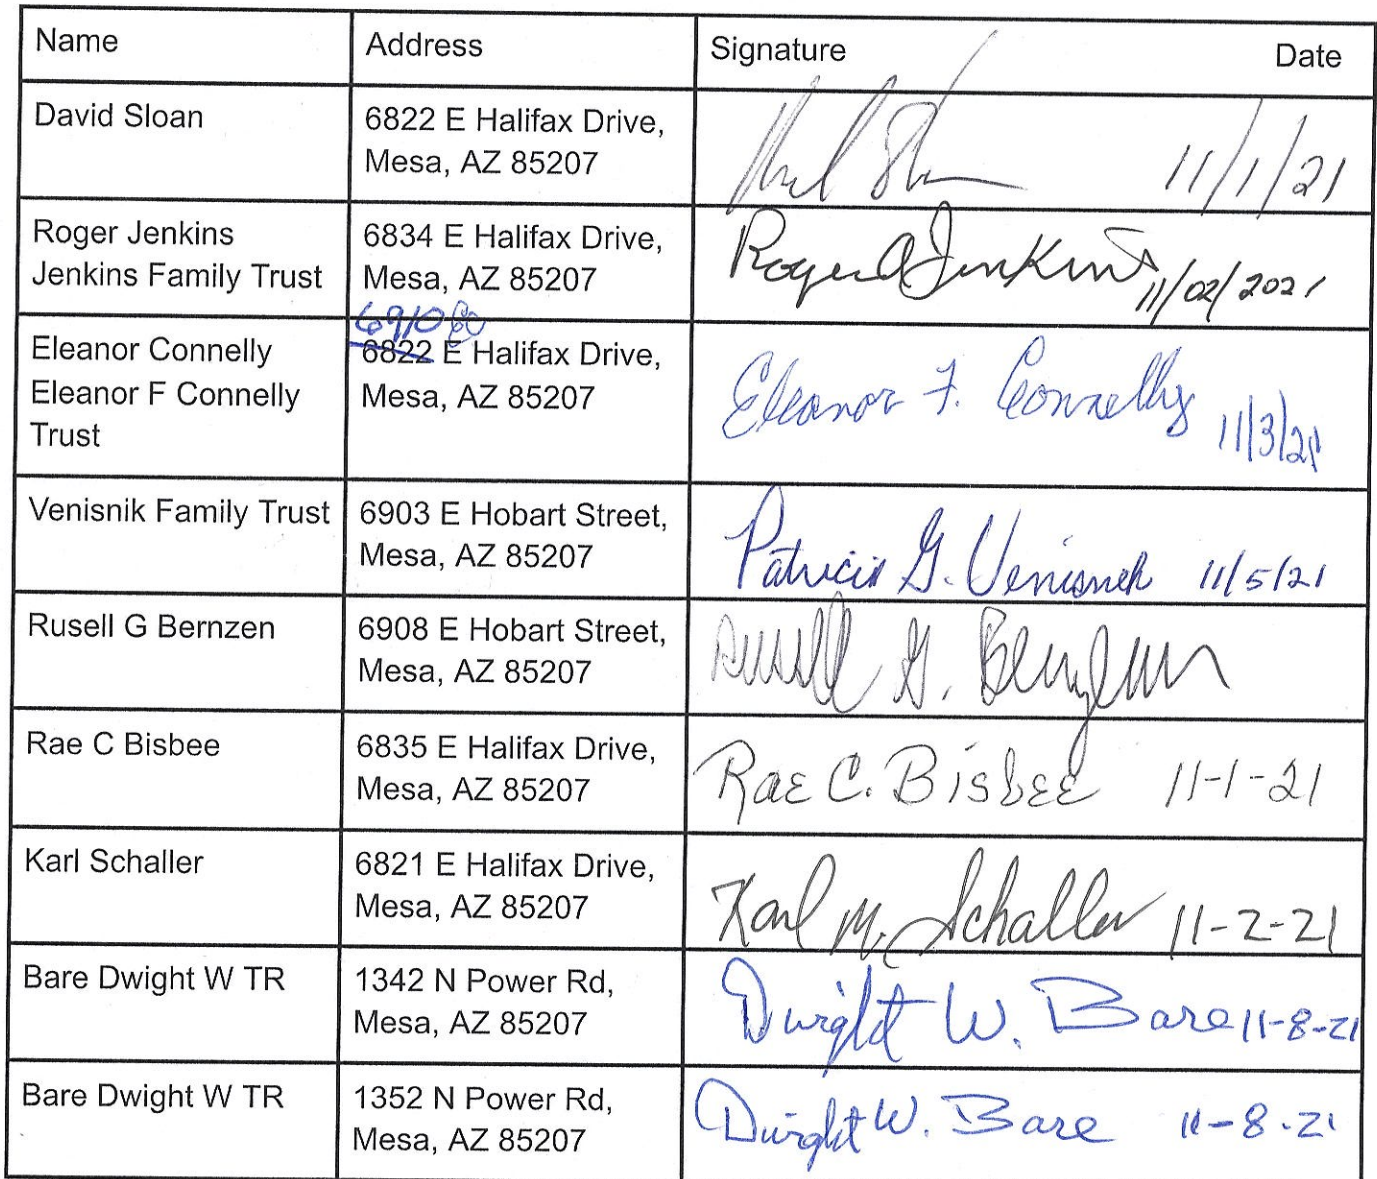 Name Address Signature Date
David Sloan 6822 E Halifax Drive,
Mesa, AZ 85207
11/1/21
Roger Jenkins 6834 E Halifax Drive,
Jenkins Family Trust Mesa, AZ 85207
Roger A Jenkins 11/02/2021
6910
Eleanor Connelly 6822 E Halifax Drive,
Eleanor F Connelly Mesa, AZ 85207
Trust
Eleanor F. Connelly 11/3/21
Venisnik Family Trust 6903 E Hobart Street,
Mesa, AZ 85207
Patricia G. Venisnik 11/5/21
Rusell G Bernzen 6908 E Hobart Street,
Mesa, AZ 85207
Russell G. Bernzen
Rae C Bisbee 6835 E Halifax Drive,
Mesa, AZ 85207
Rae C. Bisbee 11-1-21
Karl Schaller 6821 E Halifax Drive,
Mesa, AZ 85207
Karl M. Schaller 11-2-21
Bare Dwight W TR 1342 N Power Rd,
Mesa, AZ 85207
Dwight W. Bare 11-8-21
Bare Dwight W TR 1352 N Power Rd,
Mesa, AZ 85207
Dwight W. Bare 11-8-21